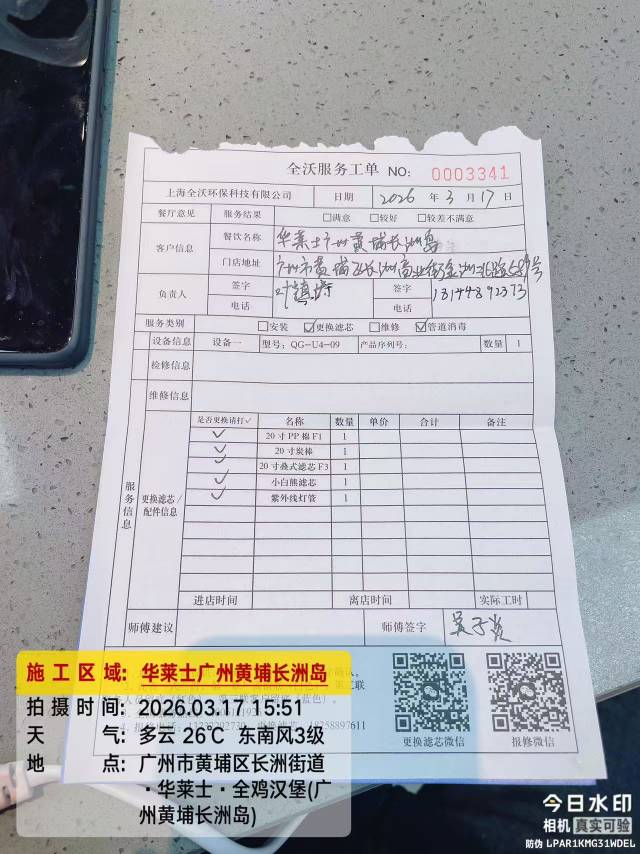 全沃服务工单 NO: 0003341
上海全沃环保科技有限公司 日期 2026 年 3 月 17 日
餐厅意见 服务结果 □满意 □较好 □较差不满意
客户信息 餐饮名称 华莱士广州黄埔长洲岛
门店地址 广州市黄埔区长洲商业街金洲北路689号
负责人 签字 签字
电话 电话 13144892373
服务类别 □安装 ☑更换滤芯 □维修 ☑管道消毒
设备信息 设备一 型号: QG-U4-09 产品序列号: 数量 1
检修信息
维修信息
服务信息 更换滤芯/配件信息
是否更换请打✓ 名称 数量 单价 合计 备注
✓ 20寸PP棉F1 1
✓ 20寸炭棒 1
✓ 20寸叠式滤芯F3 1
✓ 小白熊滤芯 1
✓ 紫外线灯管 1
进店时间 离店时间 实际工时
师傅建议 师傅签字
更换滤芯微信 报修微信
施工区域: 华莱士广州黄埔长洲岛
拍摄时间: 2026.03.17 15:51
天气: 多云 26℃ 东南风3级
地点: 广州市黄埔区长洲街道
·华莱士·全鸡汉堡(广
州黄埔长洲岛)
今日水印
相机 真实可验
防伪 LPAR1KMG31WDEL